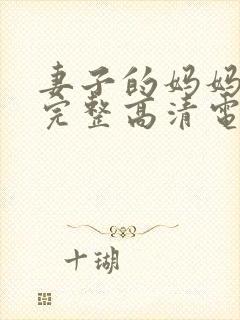 妻子的妈妈
完整高清电
十瑚